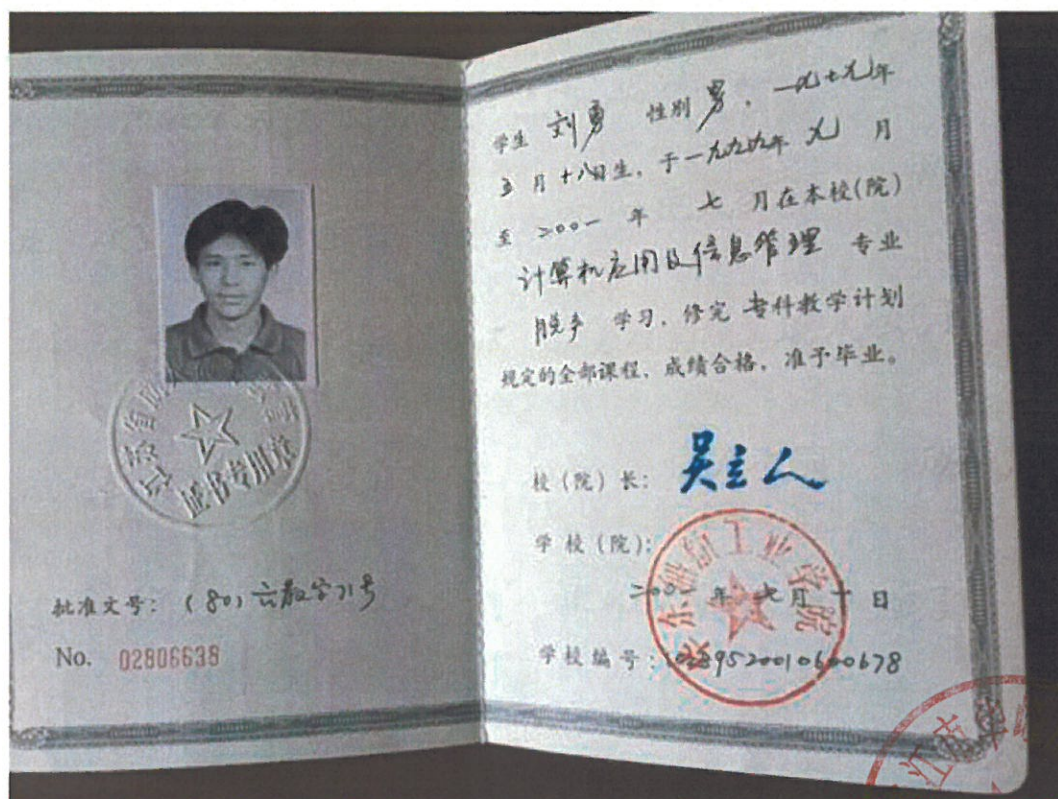 证书专用章
批准文号：(80)云教字71号
No. 02806638
学生 刘勇 性别 男，一九七九年
五月十八日生，于一九九九年九月
至二〇〇一年七月在本校(院)
计算机应用及信息管理 专业
脱产 学习，修完 专科教学计划
规定的全部课程，成绩合格，准予毕业。
校(院)长：吴主人
学校(院)：
船舶工业学院
二〇〇一年七月一日
学校编号：0289520010600678
江